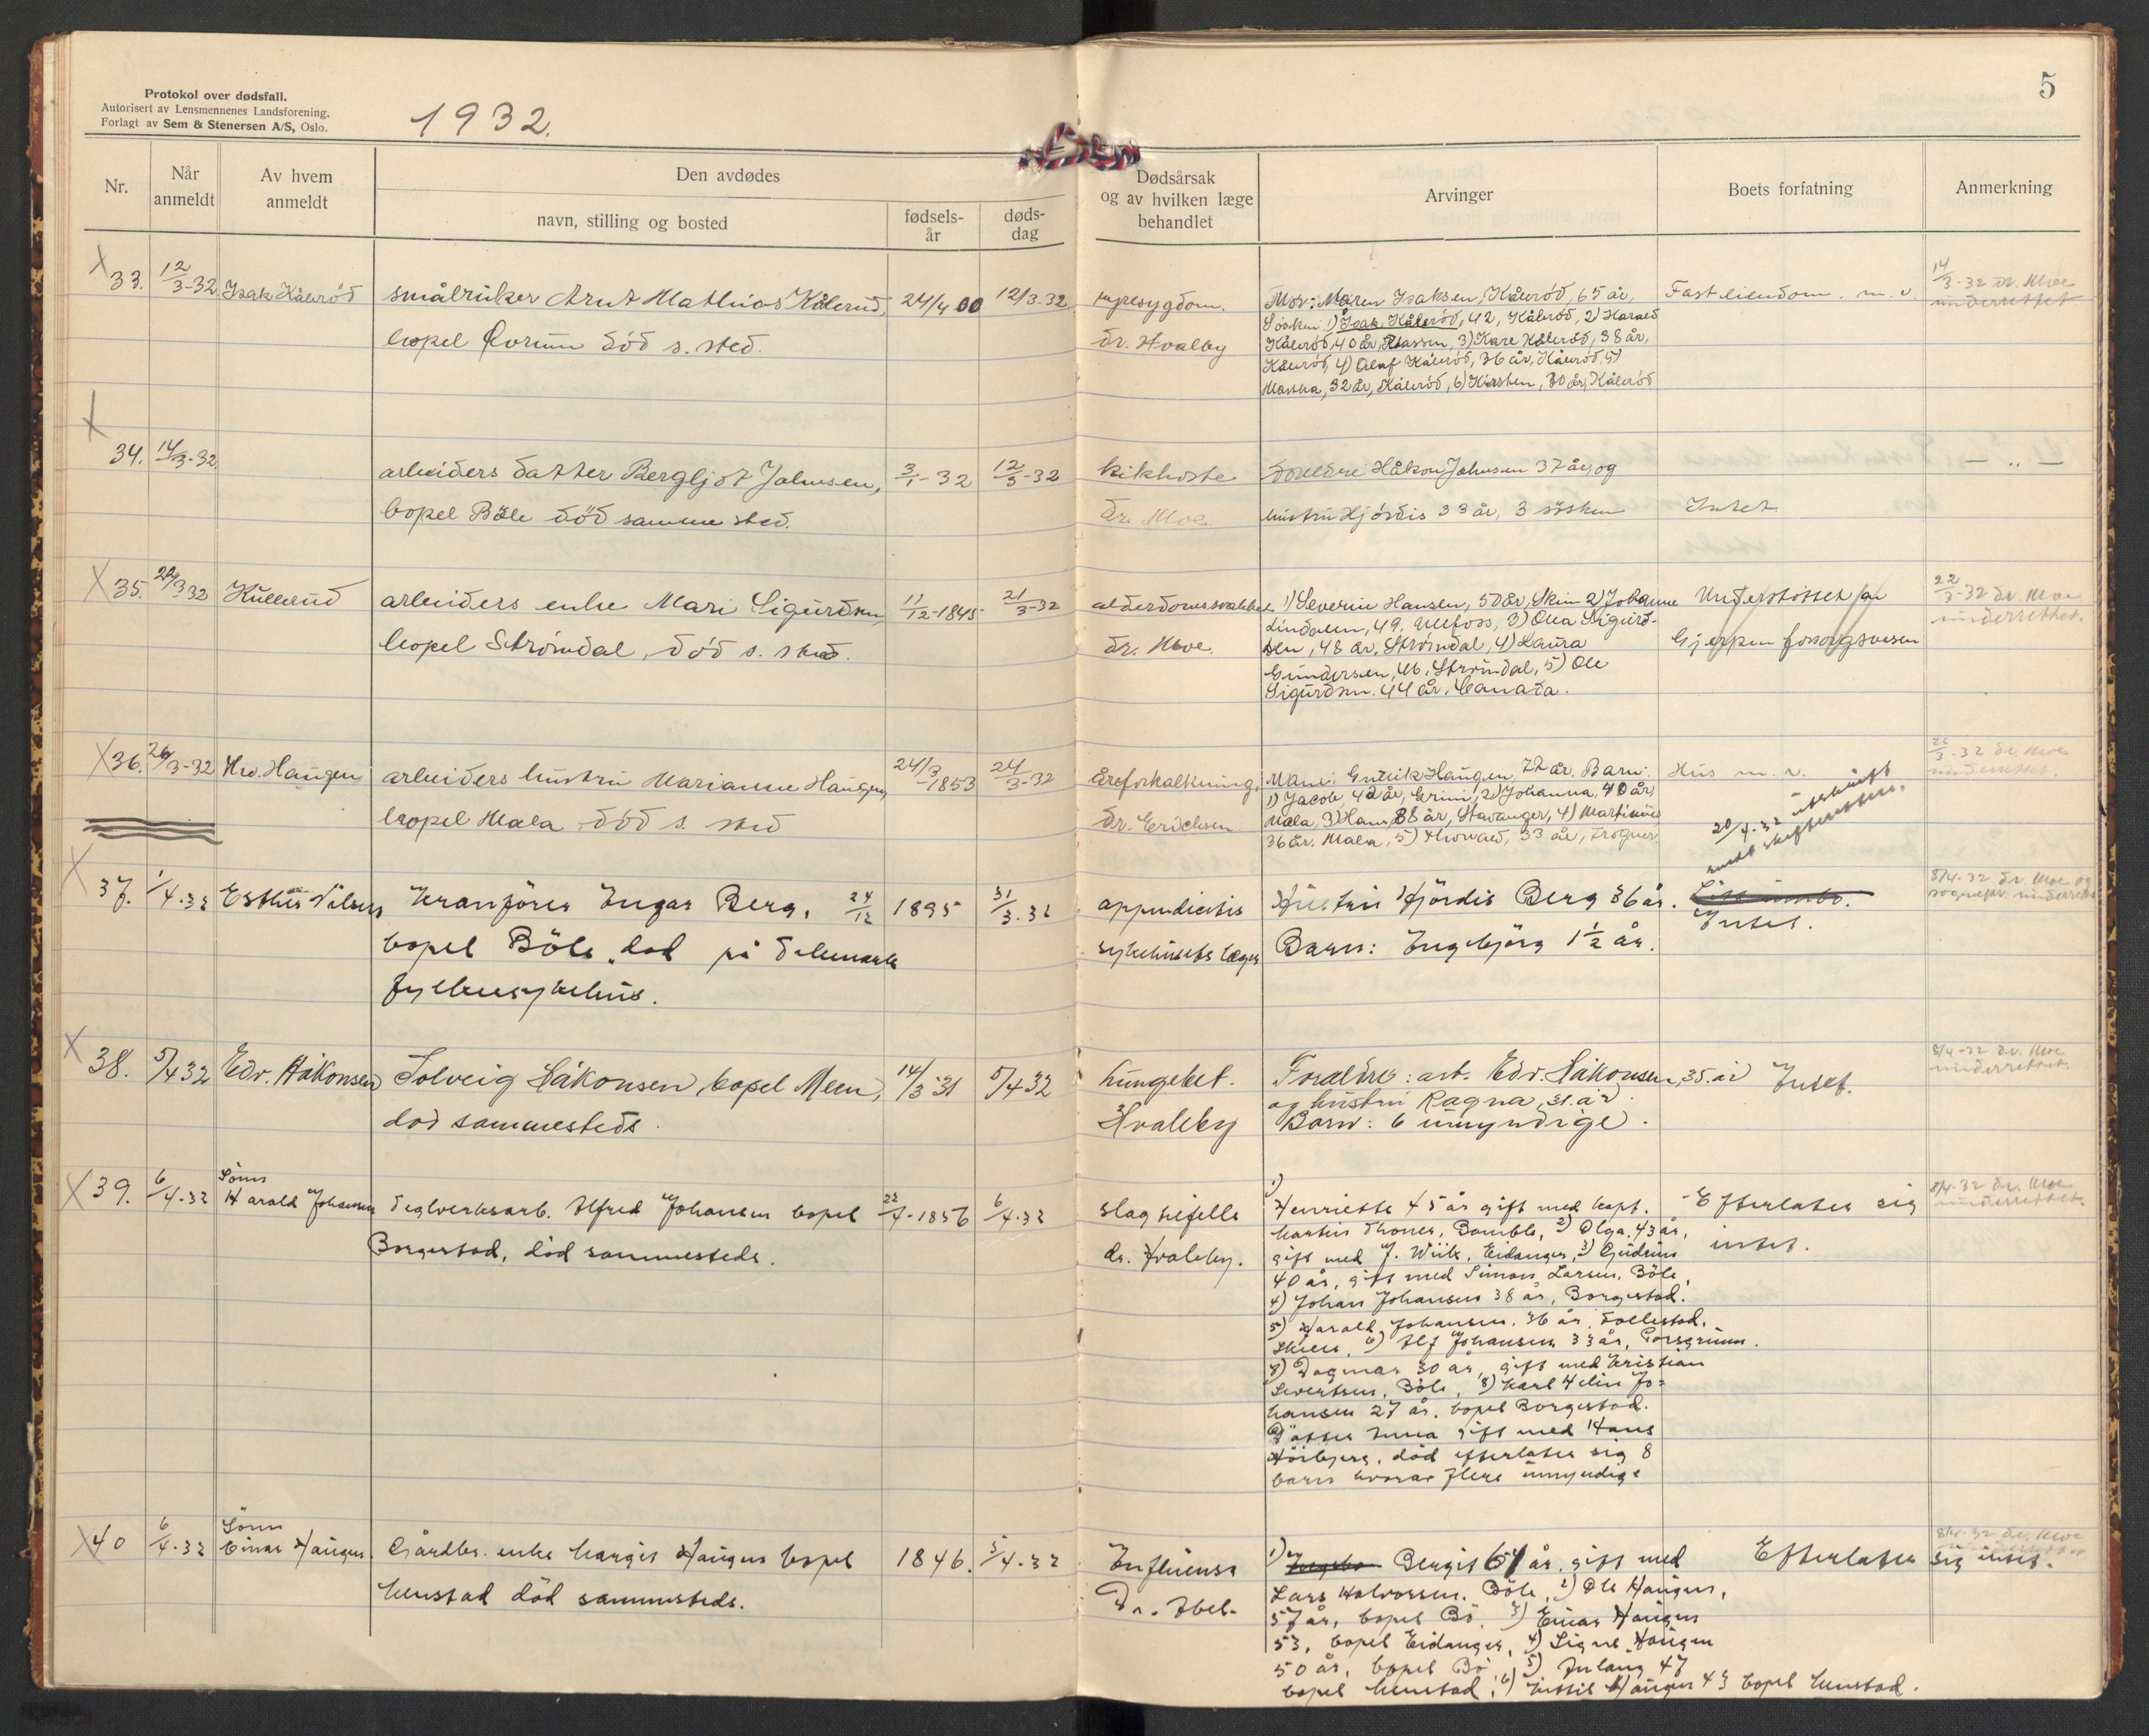 Protokol over dødsfall.
Autorisert av Lensmennenes Landsforening.
Forlagt av Sem & Stenersen A/S, Oslo.
1932.
5
Nr.
Når anmeldt
Av hvem anmeldt
Den avdødes
navn, stilling og bosted
fødsels-år
døds-dag
Dødsårsak og av hvilken læge behandlet
Arvinger
Boets forfatning
Anmerkning
X 33. 12/3-32 Isak Kålerød
småbruker Arnt Mathias Kålerud, 24/4 00 12/3.32
bopel død s. sted.
dr. Hvalby
Mor: Maren Isaksen, Kålerød, 65 år,
Søsken: 1) Isak Kålerød, 42, Kålerød, 2) Harald
Kålerød, 40 år, 3) Kare Kålerød, 38 år,
Kålerød, 4) Olaf Kålerød, 36 år, Kålerød, 5)
32 år, Kålerød, 6) Kirsten, 30 år, Kålerød
Fast eiendom. m. v.
14/3-32 dr. Moe
underrettet
X
34. 14/3-32
arbeiders datter Bergljot Johnsen, 3/1-32 12/3-32
bopel Böle död samme sted.
kikhoste
dr. Moe
Foreldre Håkon Johnsen 37 år, og
hustru Hjördis 33 år, 3 søsken
Intet
— „ —
X 35. 22/3 32 Kullerud
arbeiders enke Mari Sigurdsen, 11/12-1845 21/3-32
bopel Strömdal, död s. sted.
alderdomssvakhet
dr. Moe.
1) Severin Hansen, 50 år, Skien 2) Johanne
Lindalen, 49, Ulefoss, 3) Olea Sigurd-
sen, 48 år, Strömdal, 4) Laura
Gundersen, 46, Strömdal, 5) Ole
Sigurdsen. 44 år, Canada.
Understöttet fra
Gjerpen forsorgsvesen
22/3-32 dr. Moe
underrettet.
X 36. 26/3-32 Haugen
arbeiders hustru Marianne Haugen, 24/3-1853 24/3-32
bopel Mæla död s. sted
åreforkalkning,
dr. Erichsen
Man: Haugen, år. Barn:
1) Jacob, 42 år, 2) Johanna, 40 år,
Mæla, 3) Hans 38 år, Stavanger, 4) Martinius
36 år. Mæla, 5) Thorvald, 33 år, Frogner
Hus m. v.
20/4-32 utskrift
sendt skifteretten.
26/3-32 dr. Moe
underrettet.
X
37. 1/4.32 Esther Nilsen
Kranförer Ingar Berg, 24/12 1895 31/3.32
bopel Böle, död på Telemark
fylkessykehus.
appendicitis
sykehusets læger
Hustru Hjördis Berg 36 år.
Barn: Ingebjörg 1½ år.
Intet.
8/4-32 dr. Moe og
sognepr. underrettet
X 38. 5/4 32 Edv. Håkonsen
Solveig Håkonsen, bopel Meen, 14/3 31 5/4 32
död sammesteds.
lungebet.
Hvalby
Foreldre: arb. Edv. Håkonsen, 35 år
og hustru Ragna, 31. år.
Barn: 6 umyndige.
Intet.
8/4-32 dr. Moe
underrettet.
X 39. 6/4-32 Sönn
Harald Johansen
Teglverksarb. Alfred Johansen bopel 22/7-1856 6/4.32
Borgestad, död sammesteds.
slagtilfelle
dr. Hvalby.
1)
Henriette 45 år gift med kapt.
Martin Thoner, Bamble, 2) Olga, 43 år,
gift med J. Wiik, Eidanger, 3) Gudrun
40 år, gift med Simon Larsen, Böle,
4) Johan Johansen 38 år, Borgestad.
5) Harald Johansen, 36 år, Follestad,
Skien, 6) Alf Johansen 33 år, Porsgrunn.
7) Dagmar 30 år, gift med Kristian
Sivertsen, Böle, 8) Karl Jo-
hansen 27 år, bopel Borgestad.
Datter Anna gift med Hans
död efterlater sig 8
barn hvorav flere umyndige
Efterlater sig
intet.
8/4-32 dr. Moe
underrettet.
X 40 6/4-32 Sönn
Einar Haugen.
Gårdbr. enke Margit Haugen bopel 1846. 5/4-32
Menstad död sammesteds.
Influensa
Dr. Abel.
1) Bergit 61 år, gift med
Lars Halvorsen, Böle, 2) Ole Haugen,
57 år, bopel Bö, 3) Einar Haugen
53, bopel Eidanger, 4) Signe Haugen
50 år, bopel Bö, 5) 47
bopel Menstad, 6) Kittil Haugen 43 bopel Menstad.
Efterlater sig intet.
8/4-32 dr. Moe
underrettet